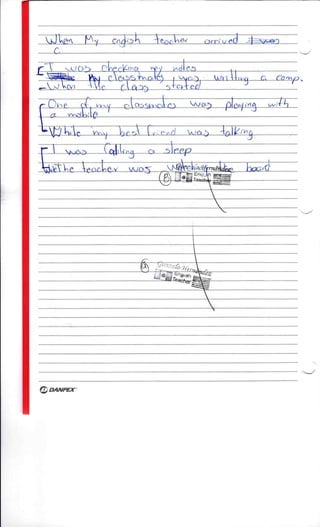 When My english teacher arrived
I was checking my notes
My classmate was writting a comp.
When the class started
One of my classmates was playing with
a mobile
While my best friend was talking
I was falling a sleep
The teacher was board
English
Teacher
English
Teacher
DANPEX